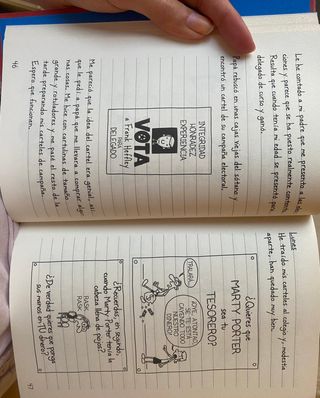 Le he contado a mi padre que me presento a las
ciones y parece que se ha puesto realmente
Resulta que cuando tenía mi edad se presentó para
delegado de curso y ganó.
Papá rebuscó en unas cajas viejas del sótano y
encontró un cartel de su campaña electoral.
INTEGRIDAD
HONRADEZ
EXPERIENCIA
VOTA
a Frank Heffley
PARA
DELEGADO
Me pareció que la idea del cartel era genial, así
que le pedí a papá que me llevara a comprar algu-
nas cosas. Me hice con cartulinas de tamaño
grande y rotuladores y me pasé el resto de la
tarde preparando mis carteles de campaña.
Espero que funcionen.
46
Lunes
He traído mis carteles al colegio y, modestia
aparte, han quedado muy bien.
¿Quieres que
MARTY PORTER
sea tu
TESORERO?
¡TRALARÁ!
¡OH, MARTY
SE ESTÁ
NUESTRO
DINERO!
¿Recuerdas, en segundo,
cuando Marty Porter tenía la
cabeza llena de piojos?
RASK
RASK
¿De verdad quieres que ponga
sus manos en TU dinero?
47